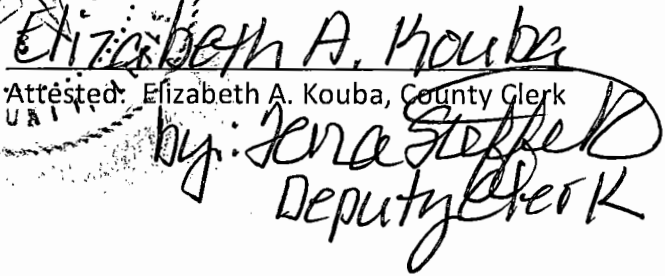 Elizabeth A. Kouba
Attested: Elizabeth A. Kouba, County Clerk
by: Tena Steffek
Deputy Clerk